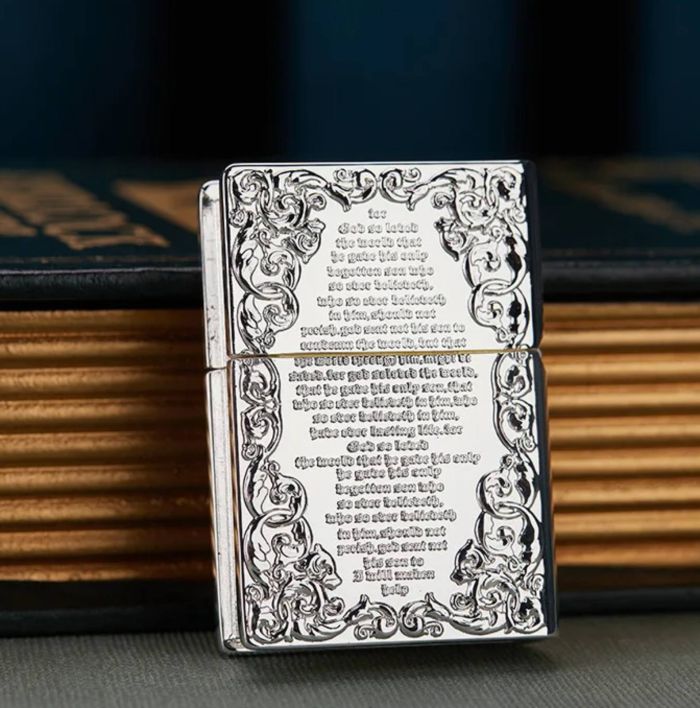 for
God so loved
the world that
he gave his only
begotten son who
so ever believeth,
who so ever believeth
in him,should not
perish,god sent not his son to
condemn the world,but that
the world through him,might be
saved.for god soloved the world,
that he gave his only son,that
who so ever believeth in him,who
so ever believeth in him,
have ever lasting life.for
God so loved
the world that he gave his only
he gave his only
begotten son who
so ever believeth,
who so ever believeth
in him,should not
perish,god sent not
his son to
I will maken
help